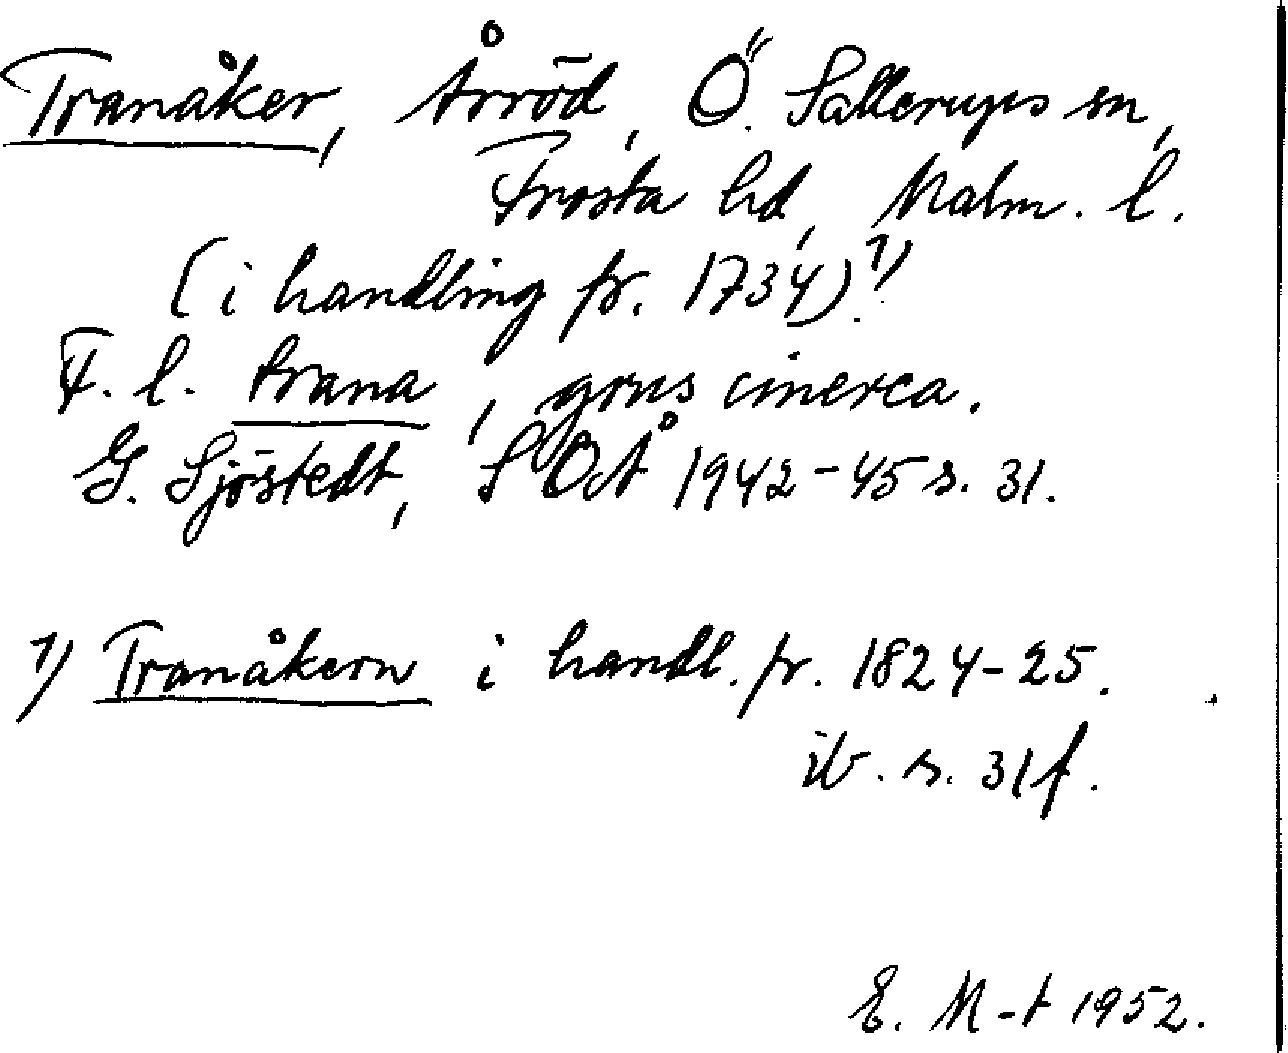 Tranåker, Årröd, Ö. Sallerups sn,
Frosta hd, Malm. l.
(i handling fr. 1734)1)
F. l. trana, grus cinerea.
G. Sjöstedt, SOÅ 1942-45 s. 31.
1) Tranåkern i handl. fr. 1824-25.
ib. s. 31 f.
E. M-t 1952.